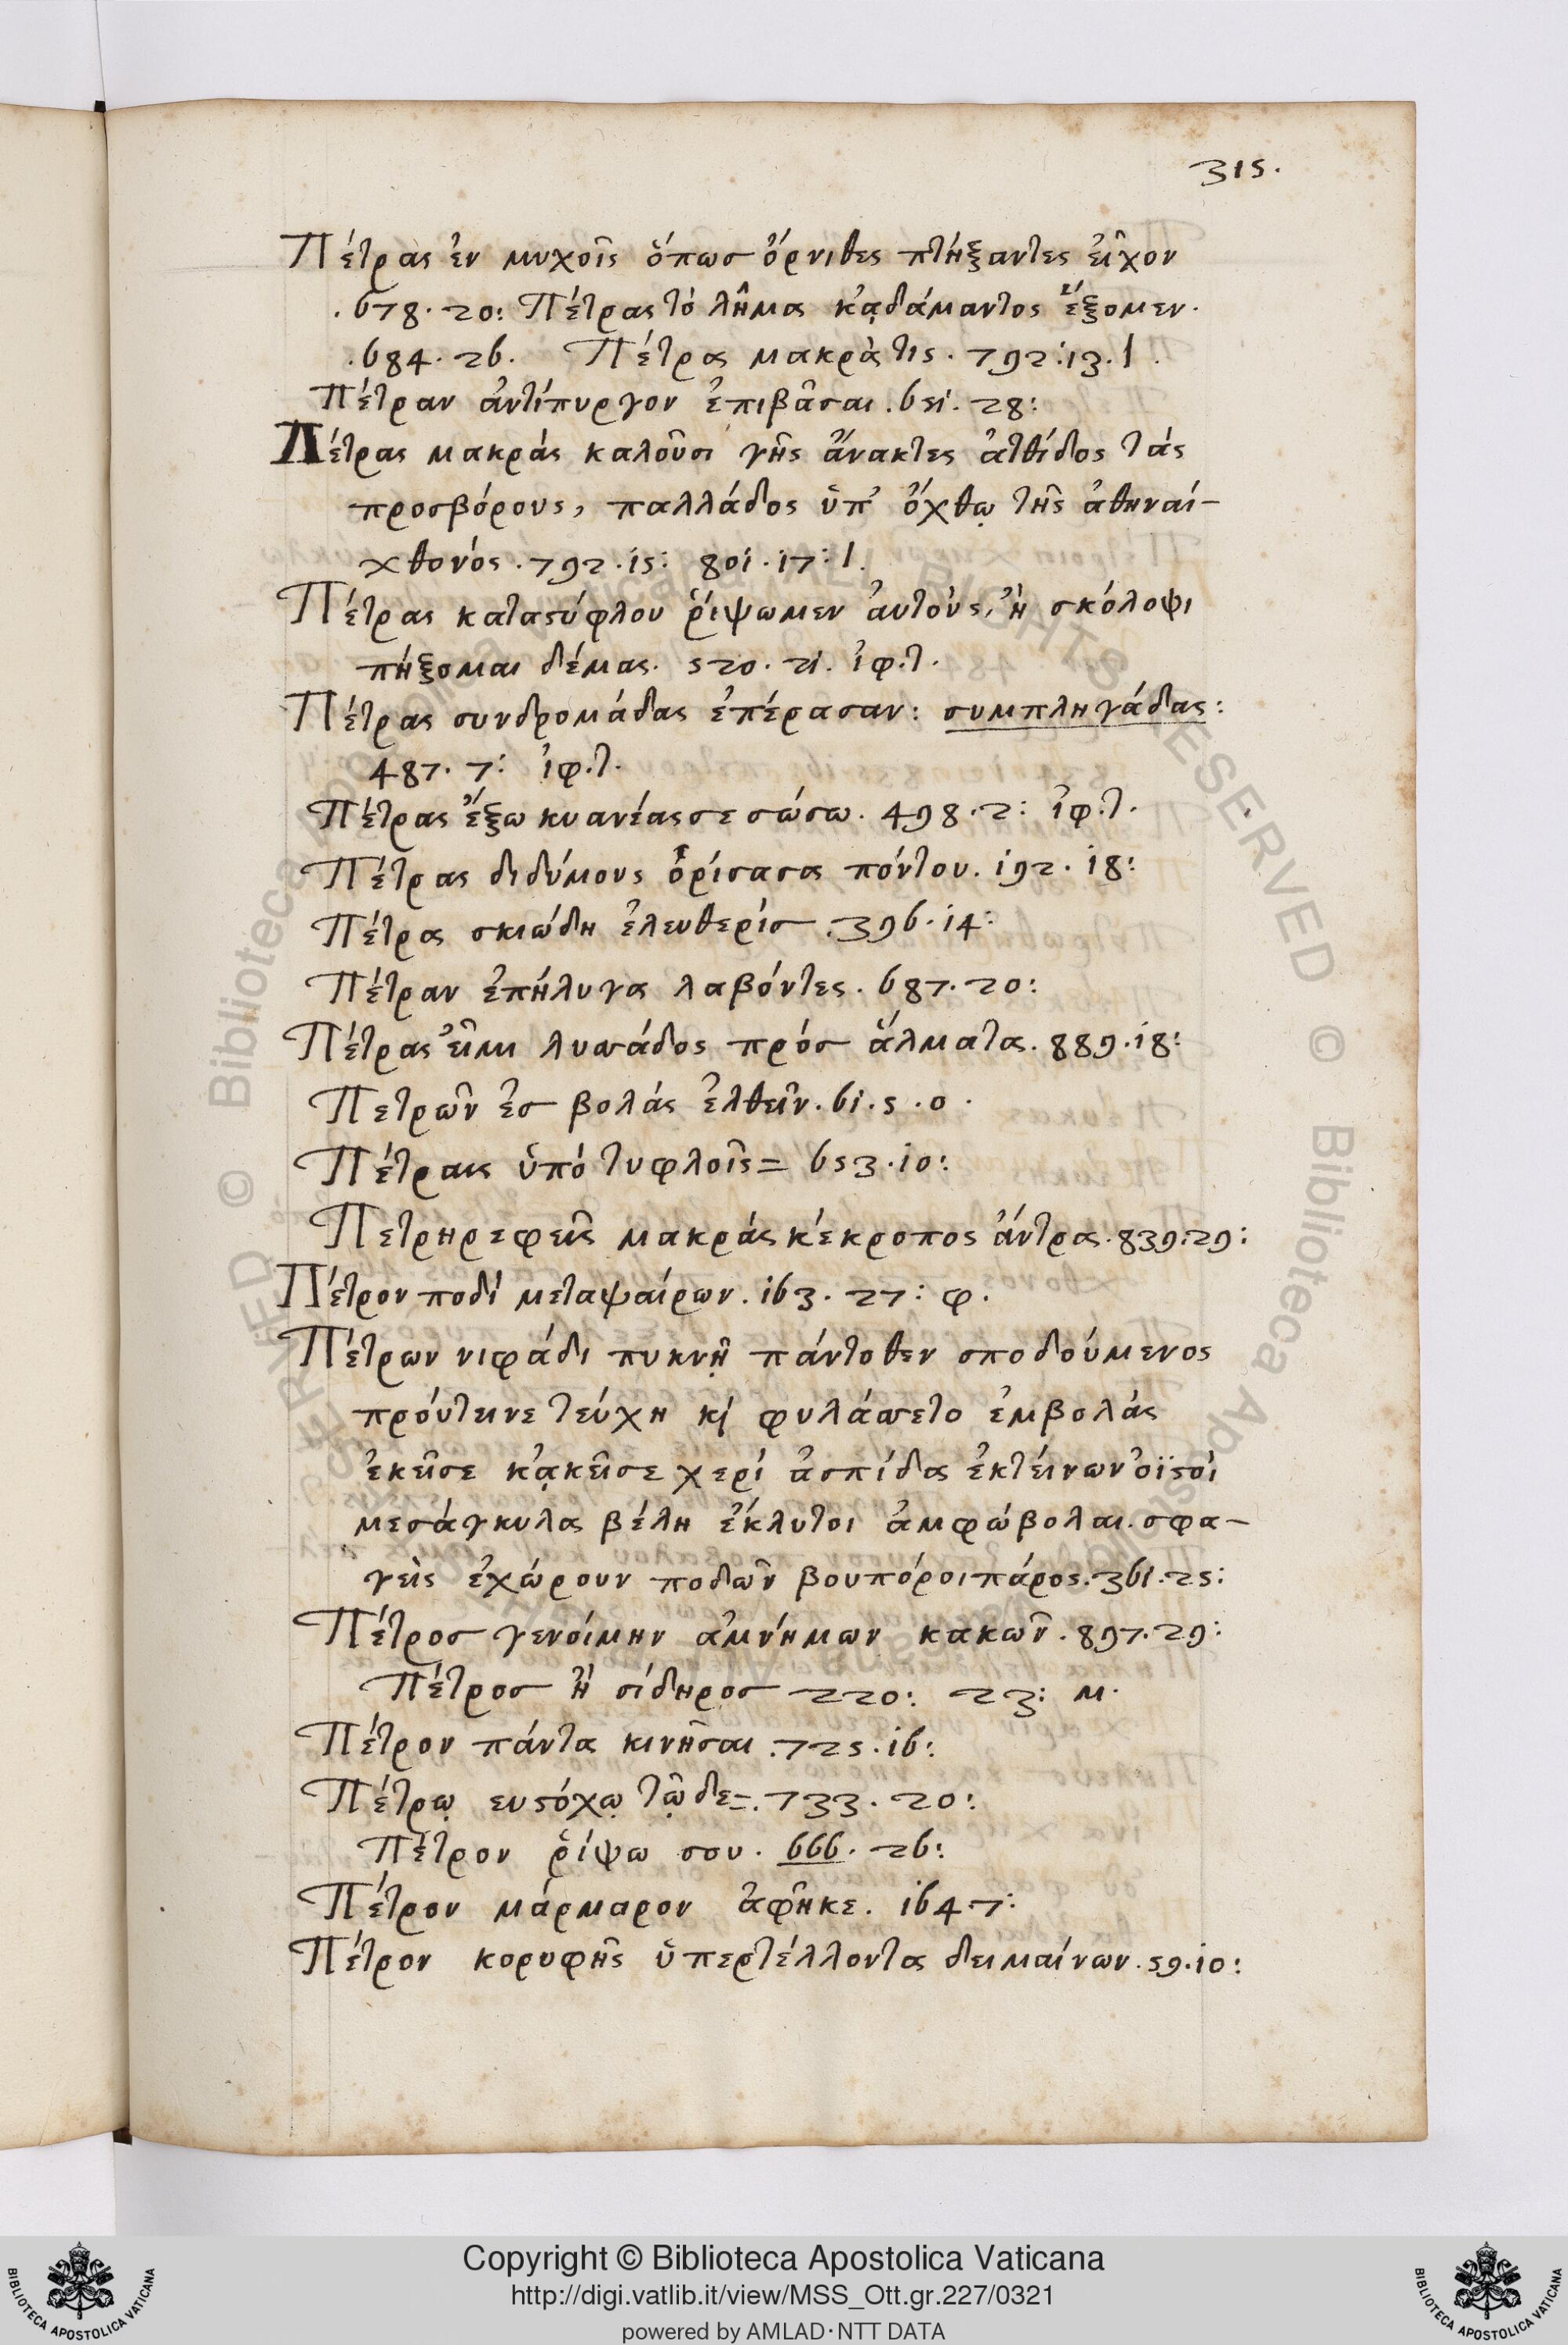 315.
Πέτρας ἐν μυχοῖς ὅπως ὄρνιθες πτήξαντες εἶχον
.678.20: Πέτρας τὸ λῆμα κᾀδάμαντος ἕξομεν.
.684.26. Πέτρα μακρὰ τις. 792:13. Ι.
Πέτραν ἀντίπυργον ἐπιβᾶσαι. 651. 28:
Πέτρας μακράς καλοῦσι γῆς ἄνακτες ἀτθίδος τάς
προσβόρους, παλλάδος ὑπ' ὄχθῳ τῆς ἀθηναί-
χθονός. 792. 15: 801. 17: Ι.
Πέτρας καταστύφλου ῥίψωμεν ἀυτούς, ἢ σκόλοψι
πήξομαι δέμας. 520. 21. ἰφ.τ.
Πέτρας συνδρομάδας ἐπέρασαν: συμπληγάδας:
487. 7: ἰφ.τ.
Πέτρας ἔξω κυανέας σε σώσω. 498. 2: ἰφ.τ.
Πέτρας διδύμους ὁρίσασα πόντου. 192. 18:
Πέτρα σκιώδη ἐλευθερίς. 396. 14:
Πέτραν ἐπήλυγα λαβόντες. 687. 20:
Πέτρας εἶμι λισσάδος πρός ἅλματα. 889. 18:
Πετρῶν ἐς βολάς ἐλθεῖν. 61. 5. ο.
Πέτραις ὑπό τυφλοῖς = 653. 10:
Πετρηρεφεῖς μακράς κέκροπος ἄντρα. 839. 29:
Πέτρον ποδί μεταψαίρων. 163. 27: φ.
Πέτρων νιφάδι πυκνῇ πάντοθεν σποδούμενος
πρόυτεινε τεύχη κὶ φυλάσσετο ἐμβολάς
ἐκεῖσε κᾀκεῖσε χερί ἀσπίδα ἐκτείνων ὀϊστοί
μεσάγκυλα βέλη ἔκλυτοι ἀμφώβολαι. σφα-
γεὶς ἐχώρουν ποδῶν βουπόροι πάρος. 361. 25:
Πέτρος γενοίμην ἀμνήμων κακῶν. 897. 29:
Πέτρος ἢ σίδηρος 220: 23: μ.
Πέτρον πάντα κινῆσαι. 725. 16:
Πέτρῳ ευστόχῳ τῷδε =. 733. 20:
Πέτρον ῥίψω σου. 666. 26:
Πέτρον μάρμαρον ἀφῆκε. 164. 7:
Πέτρον κορυφῆς ὑπερτέλλοντα δειμαίνων. 59. 10:
Copyright © Biblioteca Apostolica Vaticana
http://digi.vatlib.it/view/MSS_Ott.gr.227/0321
powered by AMLAD·NTT DATA